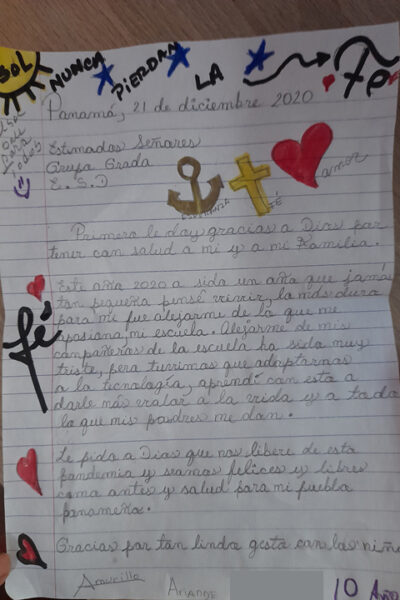 SOL
NUNCA PIERDAN LA Fe
Panamá, 21 de diciembre 2020
para todos
Estimados Señores
Grupo Grada
E. S. D
ESPERANZA
FÉ
amor
Primero le doy gracias a Dios por
tener con salud a mi y a mi Familia.
Este año 2020 a sido un año que jamás
tan pequeña pensé vivir, la más dura
para mi fue alejarme de lo que me
apasiona, mi escuela. Alejarme de mis
compañeros de la escuela ha sido muy
triste, pero tuvimos que adaptarnos
a la tecnología, aprendí con esto a
darle más valor a la vida y a todo
lo que mis padres me dan.
fé
Le pido a Dios que nos libere de esta
pandemia y seamos felices y libres
como antes y salud para mi pueblo
panameño.
Gracias por tan linda gesto con los niño
Amarilis Arianne
10 Año